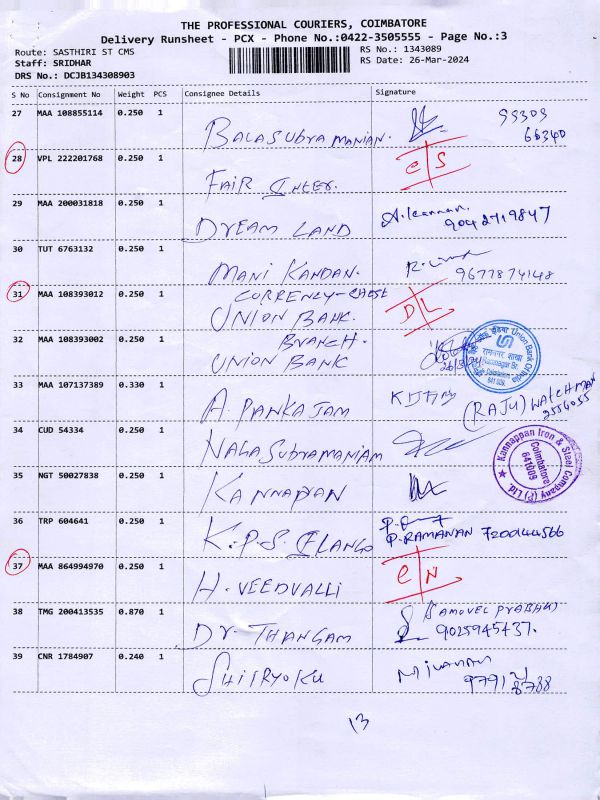 THE PROFESSIONAL COURIERS, COIMBATORE
Delivery Runsheet - PCX - Phone No.:0422-3505555 - Page No.:3
Route: SASTHIRI ST CMS
RS No.: 1343089
Staff: SRIDHAR
RS Date: 26-Mar-2024
DRS No.: DCJB134308903
S No Consignment No Weight PCS Consignee Details Signature
27 MAA 108855114 0.250 1
BALASUBRAMANIAN.
99309
66340
28 VPL 222201768 0.250 1
FAIR INTER.
C S
29 MAA 200031818 0.250 1
DREAM LAND
A. Kannan.
9042719847
30 TUT 6763132 0.250 1
MANI KANDAN.
9677874148
31 MAA 108393012 0.250 1
CURRENCY-CHEST
UNION BANK.
D L
32 MAA 108393002 0.250 1
BRANCH.
UNION BANK
Union Bank Of India
रामनगर शाखा
Ramnagar Br.
33 MAA 107137389 0.330 1
A. PANKAJAM
(RAJU) WATCHMAN
2554055
34 CUD 54334 0.250 1
NAGASUBRAMANIAM
35 NGT 50027838 0.250 1
KANNAPPAN
Kannappan Iron & Steel Company (P) Ltd
Coimbatore
641009
36 TRP 604641 0.250 1
K.P.S. ELANGO
P. RAMANAN 7200444566
37 MAA 864994970 0.250 1
H. VEEDVALLI
C N
38 TMG 200413535 0.870 1
DR. THANGAM
(SAMOVEL PRABHU)
9025945437.
39 CNR 1784907 0.240 1
SHIIRYOKU
13